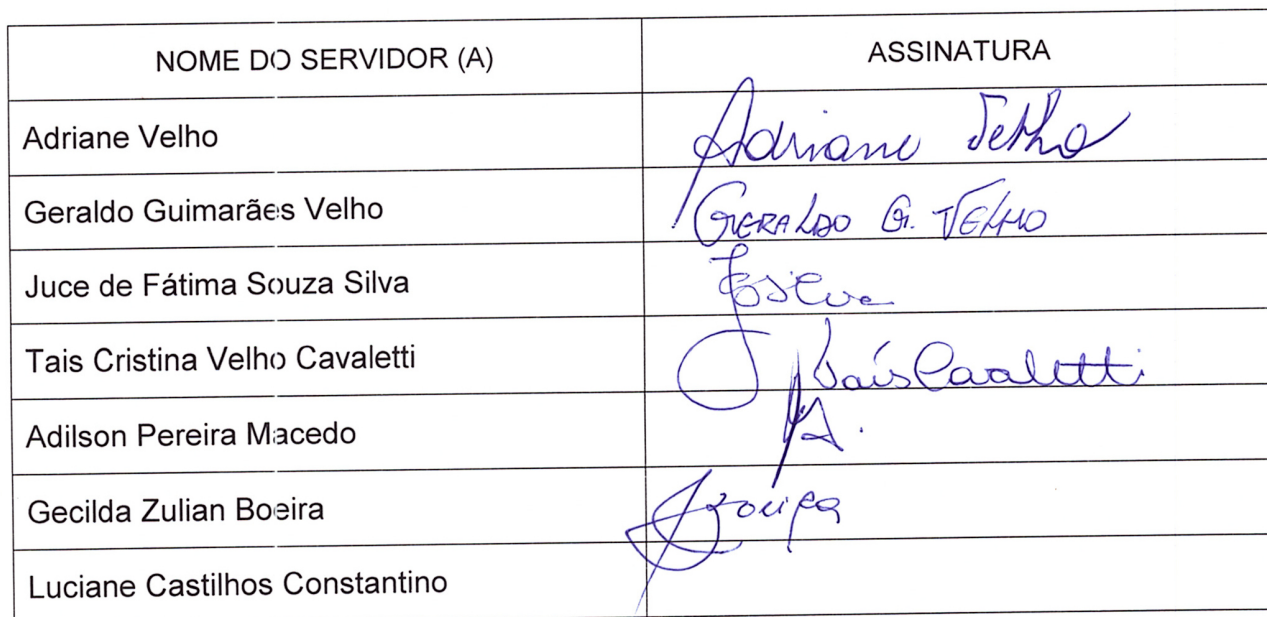 NOME DO SERVIDOR (A) ASSINATURA
Adriane Velho Adriane Velho
Geraldo Guimarães Velho GERALDO G. VELHO
Juce de Fátima Souza Silva
Tais Cristina Velho Cavaletti Taís Cavaletti
Adilson Pereira Macedo
Gecilda Zulian Boeira
Luciane Castilhos Constantino